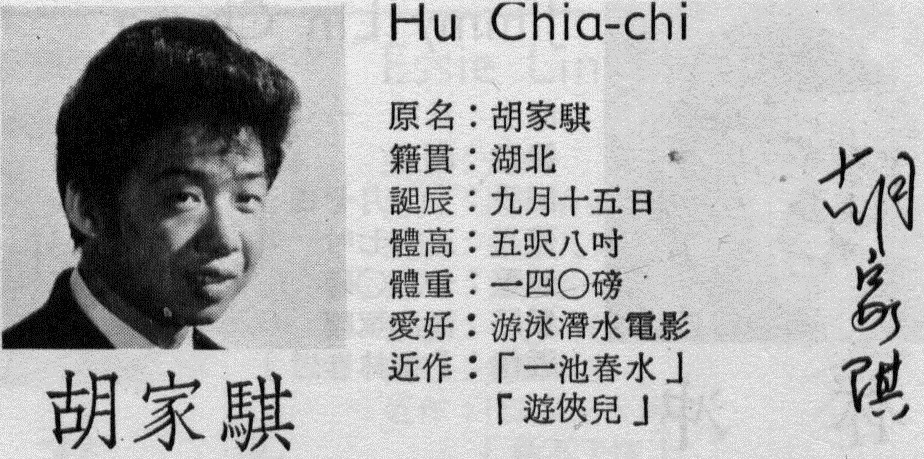 Hu Chia-chi
原名：胡家騏
籍貫：湖北
誕辰：九月十五日
體高：五呎八吋
體重：一四〇磅
愛好：游泳潛水電影
近作：「一池春水」
「遊俠兒」
胡家騏
胡家騏